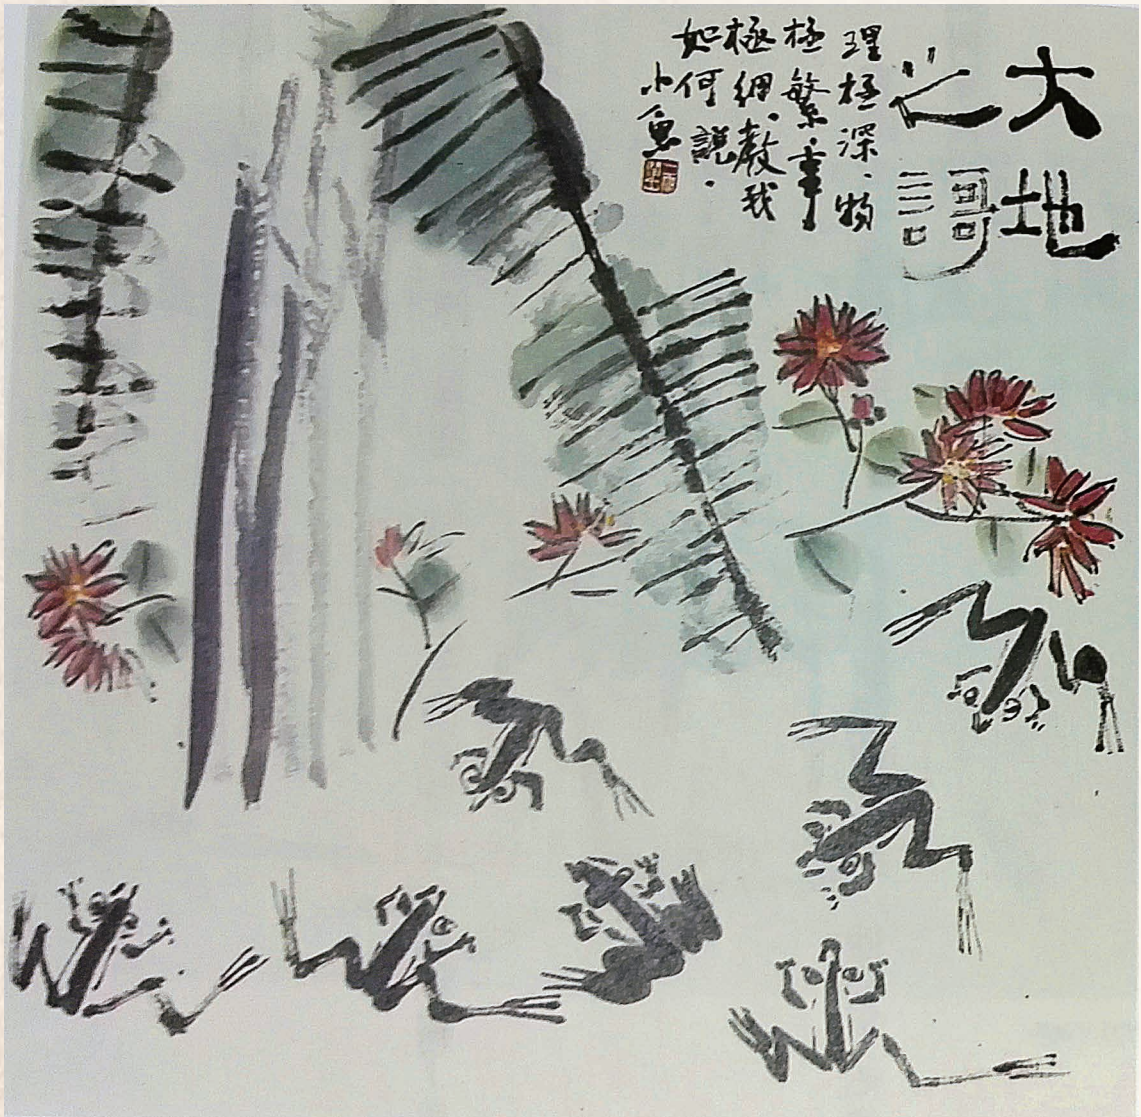 大地
之謌
理極深、物
極繁、事
極細、教我
如何說。
小魚